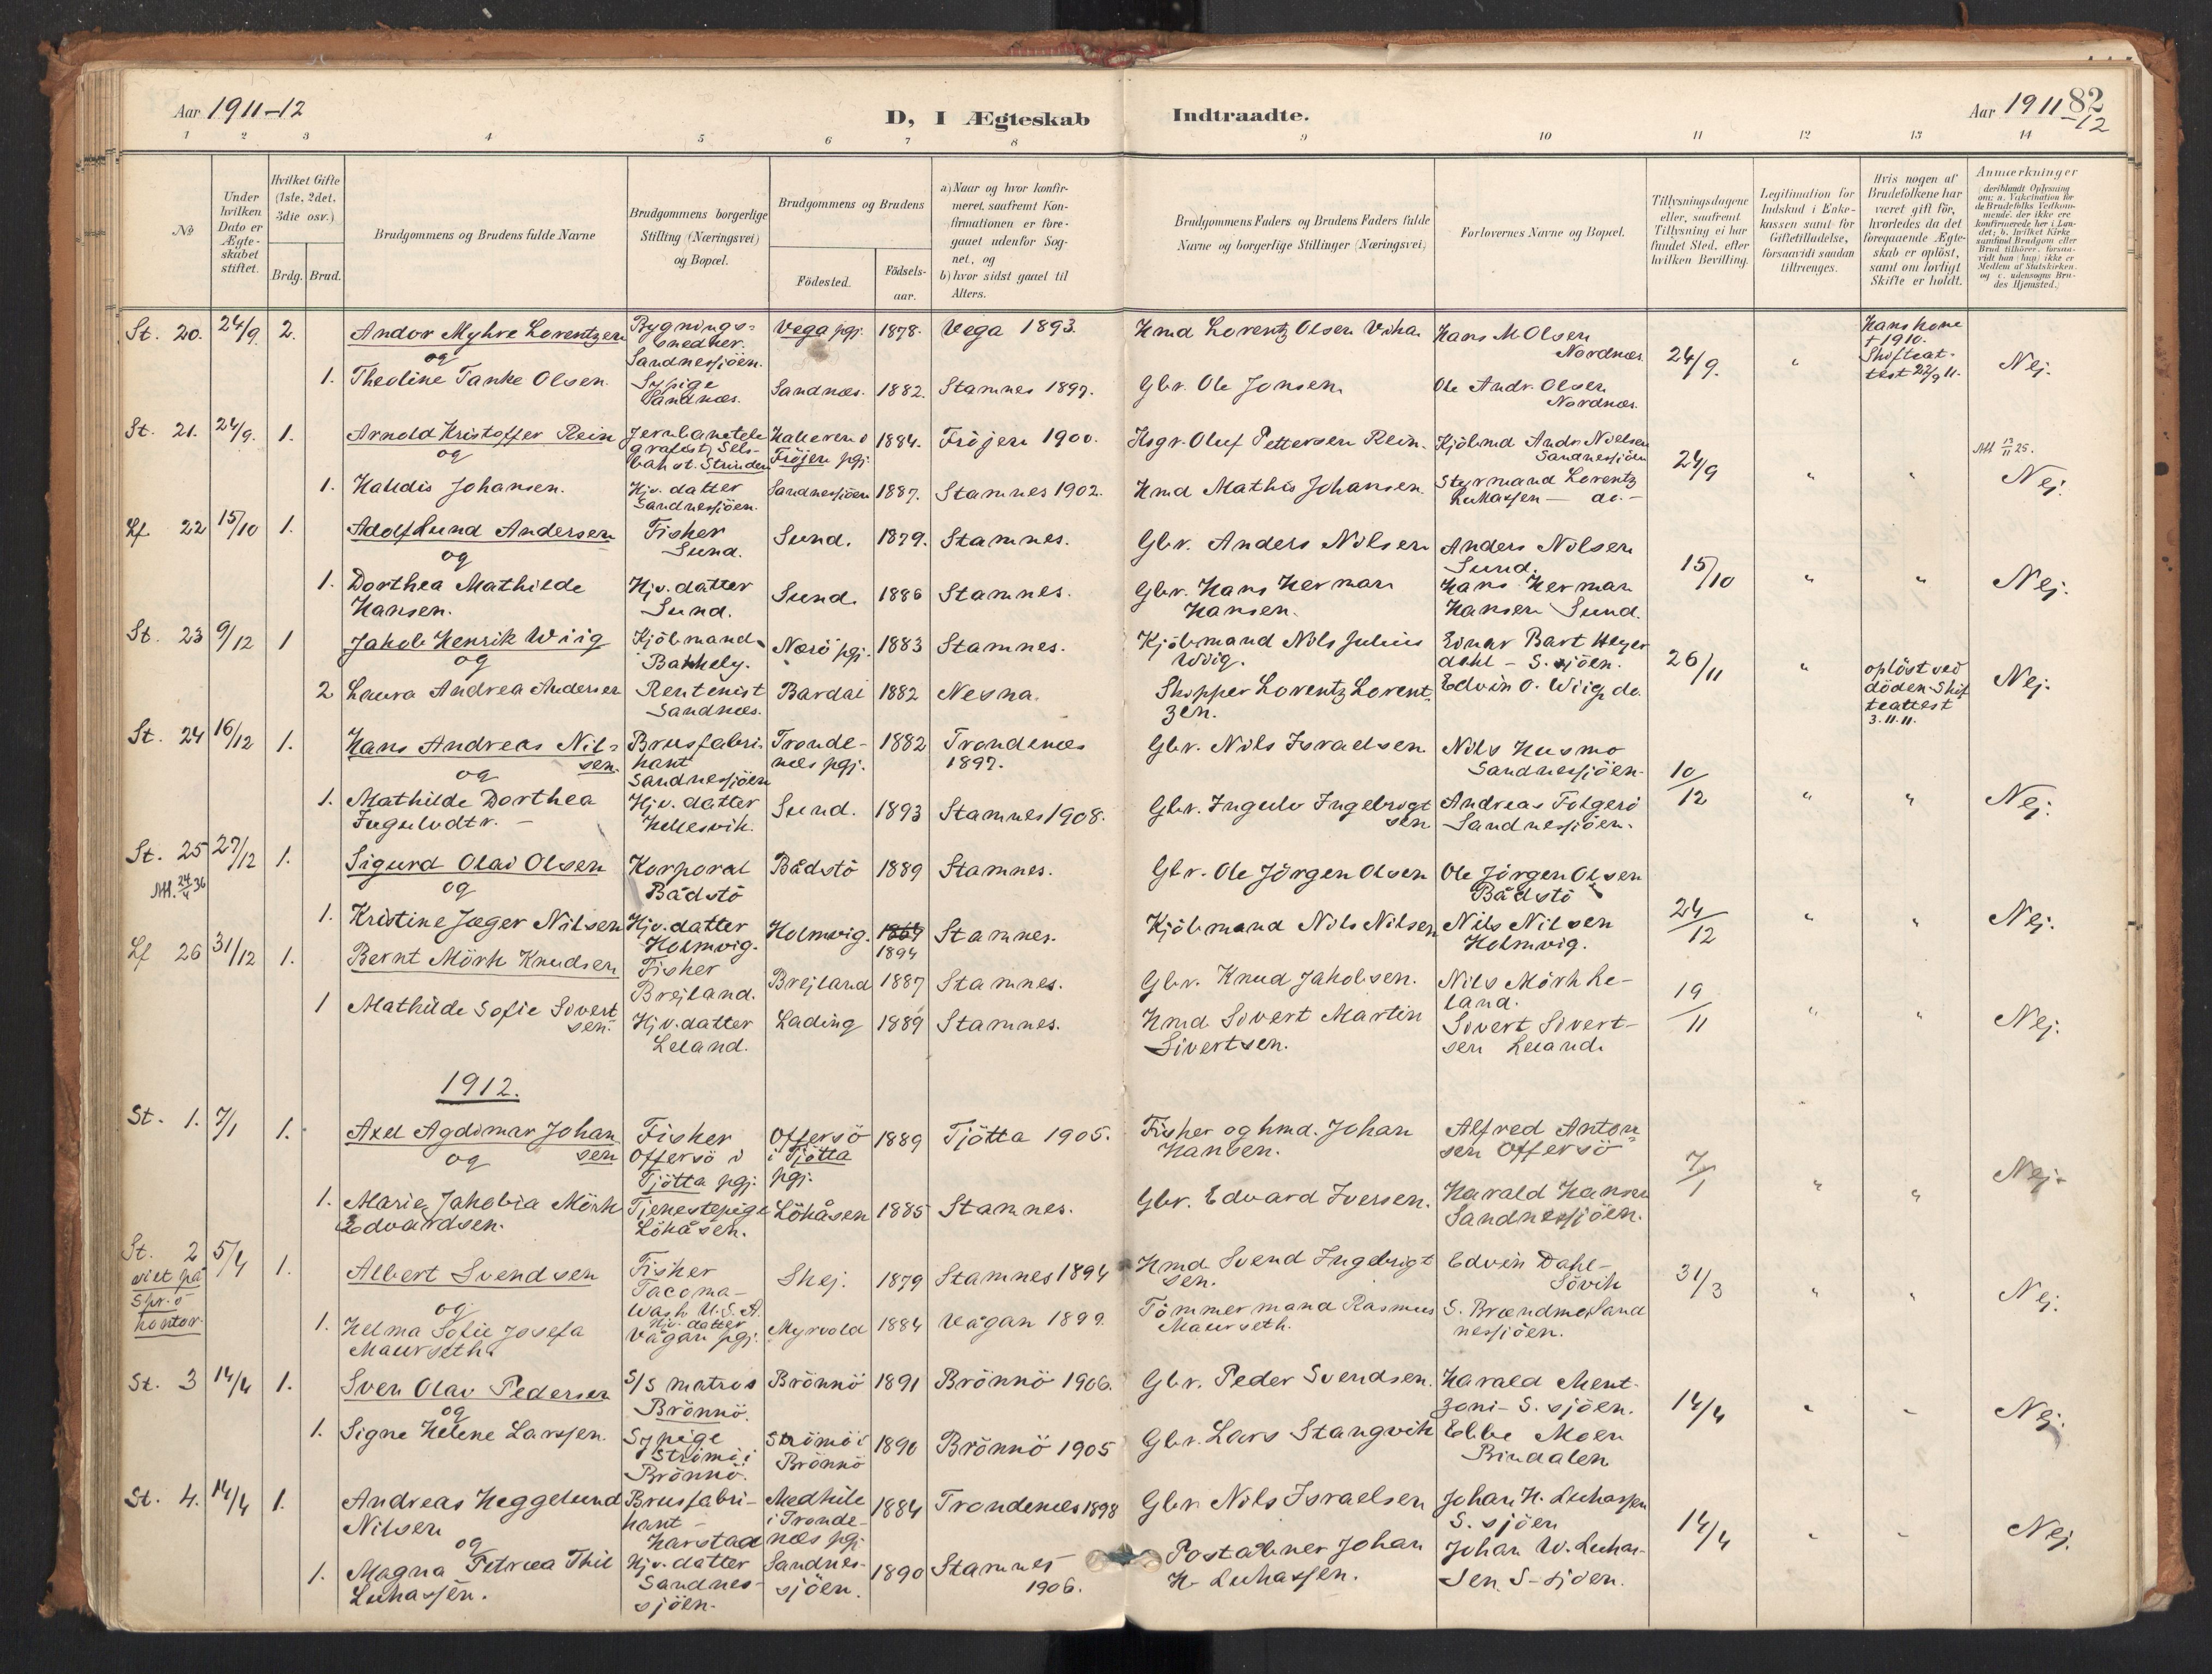 Aar 1911-12
D, I Ægteskab Indtraadte.
Aar 1911-12
82
1 2 3 4 5 6 7 8 9 10 11 12 13 14
№
Under hvilken Dato er Ægteskabet stiftet.
Hvilket Gifte (1ste, 2det, 3die osv.)
Brdg. Brud.
Brudgommens og Brudens fulde Navne
Brudgommens borgerlige Stilling (Næringsvei) og Bopæl.
Brudgommens og Brudens
Fødested.
Fødsels-aar.
a) Naar og hvor konfirmeret, saafremt Konfirmationen er foregaaet udenfor Sognet, og
b) hvor sidst gaaet til Alters.
Brudgommens Faders og Brudens Faders fulde Navne og borgerlige Stillinger (Næringsvei)
Forlovernes Navne og Bopæl.
Tillysningsdagene eller, saafremt Tillysning ei har fundet Sted, efter hvilken Bevilling.
Legitimation for Indskud i Enkekassen samt for Giftetilladelse, forsaavidt saadan tiltrænges.
Hvis nogen af Brudefolkene har været gift før, hvorledes da det foregaaende Ægteskab er opløst, samt om lovligt Skifte er holdt.
Anmærkninger
(deriblandt Oplysning om: a. Vakcination for de Brudefolks Vedkommende, der ikke ere konfirmerede her i Landet; b. hvilket Kirkesamfund Brudgom eller Brud tilhører, forsaavidt han (hun) ikke er Medlem af Statskirken, og c. udensogns Brudes Hjemsted.)
St. 20. 24/9 2. Andor Myhre Lorentzen Bygningssnedker. Sandnessjöen. Vega pgj. 1878. Vega 1893. Hmd Lorentz Olsen Hans M Olsen Nordnæs 24/9. " Hans kone + 1910. Skifteattest 22/9 11. Nej.
og
1. Theoline Tanke Olsen. Sypige Sandnæs. Sandnæs. 1882. Stamnes 1897. Gbr. Ole Jonsen Ole Andr. Olsen Nordnæs.
St. 21. 24/9. 1. Arnold Kristoffer Rein Fröjen pgj. 1884. Fröjen 1900. Oluf Pettersen Rein. Kjöbmd Andr Nielsen Sandnessjöen 24/9 " " Nej.
og
1. Halldis Johansen. Hjv. datter Sandnessjöen. Sandnessjöen 1887. Stamnes 1902. Hmd Mathis Johansen. Styrmand Lorentz Lukassen - do. -
Lf 22 15/10 1. Adolf Lund Andersen Fisker Sund. Sund. 1879. Stamnes. Gbr. Anders Nilsen Anders Nilsen Sund. 15/10 " " Nej.
og
1. Dorthea Mathilde Hansen. Hjv. datter Sund. Sund. 1886 Stamnes. Gbr. Hans Herman Hansen. Hans Herman Hansen Sund.
St. 23 9/12 1 Jakob Henrik Wiig Kjöbmand Bakkely. Nærö pgj. 1883 Stamnes. Kjöbmand Nils Julius Wiig. Einar Bart Heyerdahl - S. sjöen. 26/11 " oplöst ved döden. Skifteattest 3.11.11. Nej.
og
2 Laura Andrea Andersen Rentenist Sandnæs. Bardal 1882 Nesna. Skipper Lorentz Lorentzen. Edvin O. Wiig do.
St. 24 16/12 1. Hans Andreas Nilsen. Brusfabrikant Sandnessjöen Trondenæs pgj. 1882 Trondenæs 1897. Gbr. Nils Israelsen. Nils Husmo Sandnessjöen. 10/12 " " Nej.
og
1. Mathilde Dorthea Ingulvdtr. - Hjv. datter Hellesvik. Sund. 1893 Stamnes 1908. Gbr. Ingulv Ingebrigtsen Andreas Folgerö Sandnessjöen.
St. 25 27/12 1. Sigurd Olai Olsen Korporal Bådstö Bådstö 1889 Stamnes. Gbr. Ole Jörgen Olsen Ole Jörgen Olsen Bådstö 24/12 " " Nej.
og
1. Kristine Jæger Nilsen Hjv. datter Holmvig. Holmvig. 1894 Stamnes. Kjöbmand Nils Nilsen Nils Nilsen Holmvig.
Lf 26 31/12 1. Bernt Mörk Knudsen Fisker Brejland. Brejland 1887 Stamnes. Gbr. Knud Jakobsen. Nils Mörk Leland. 19/11 " " Nej.
1 Mathilde Sofie Sivertsen. Hjv. datter Leland. Lading 1889 Stamnes. Hmd. Sivert Martin Sivertsen. Sivert Sivertsen Leland.
1912.
St. 1. 7/1 1. Axel Agdimar Johansen Fisker Offersö i Tjötta pgj. Offersö i Tjötta pgj. 1889 Tjötta 1905. Fisker og hmd. Johan Hansen. Alfred Antonsen Offersö 7/1 " " Nej.
og
1. Marie Jakobia Mörk Edvardsen. Tjenestepige Lökåsen. Lökåsen 1885 Stamnes. Gbr. Edvard Iversen. Harald Hansen Sandnessjöen.
St. 2 viet på kontor. 5/4 1. Albert Svendsen Fisker Tacoma - Wash U.S.A. Skej. 1879 Stamnes 1894 Hmd Svend Ingebrigtsen. Edvin Dahl - Sövik 31/3 " " Nej.
og
1. Helma Sofie Josefa Maurseth. Hjv. datter Vågan pgj. Myrvold 1884 Vågan 1899. Tömmermand Rasmus Maurseth. S. Brændmo Sandnessjöen.
St. 3 14/4 1. Sven Olav Pedersen S/S matros Brönnö. Brönnö 1891 Brönnö 1906. Gbr. Peder Svendsen. Harald Mentzoni - S. sjöen. 14/4 " " Nej.
og
1. Signe Helene Larssen. Sypige Strömö i Brönnö. Strömö i Brönnö 1890 Brönnö 1905 Gbr. Lars Stangvik Ebbe Moen Bindalen
St. 4. 14/4 1. Andreas Heggelund Nilsen Brusfabrikant - Harstad Medkile i Trondenæs pgj. 1884 Trondenæs 1898 Gbr. Nils Israelsen Johan H. Lukassen S. sjöen 14/4 " " Nej.
og
1. Magna Petrea Thil Lukassen. Hjv. datter Sandnessjöen. Sandnessjöen. 1890 Stamnes 1906. Postabner Johan H. Lukassen. Johan W. Lukassen S-sjöen.